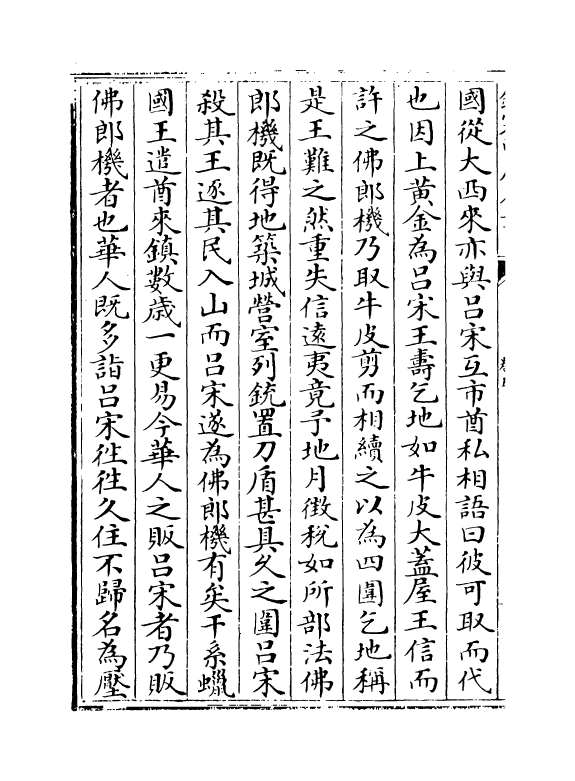 國從大西來亦與吕宋互市酋私相語曰彼可取而代
也因上黄金為吕宋王壽乞地如牛皮大蓋屋王信而
許之佛郎機乃取牛皮剪而相續之以為四圍乞地稱
是王難之然重失信遠夷竟予地月徵税如所部法佛
郎機既得地築城營室列銃置刀盾甚具久之圍吕宋
殺其王逐其民入山而吕宋遂為佛郎機有矣干系蠟
國王遣酋來鎮數歲一更易今華人之販吕宋者乃販
佛郎機者也華人既多詣吕宋徃徃久住不歸名為壓